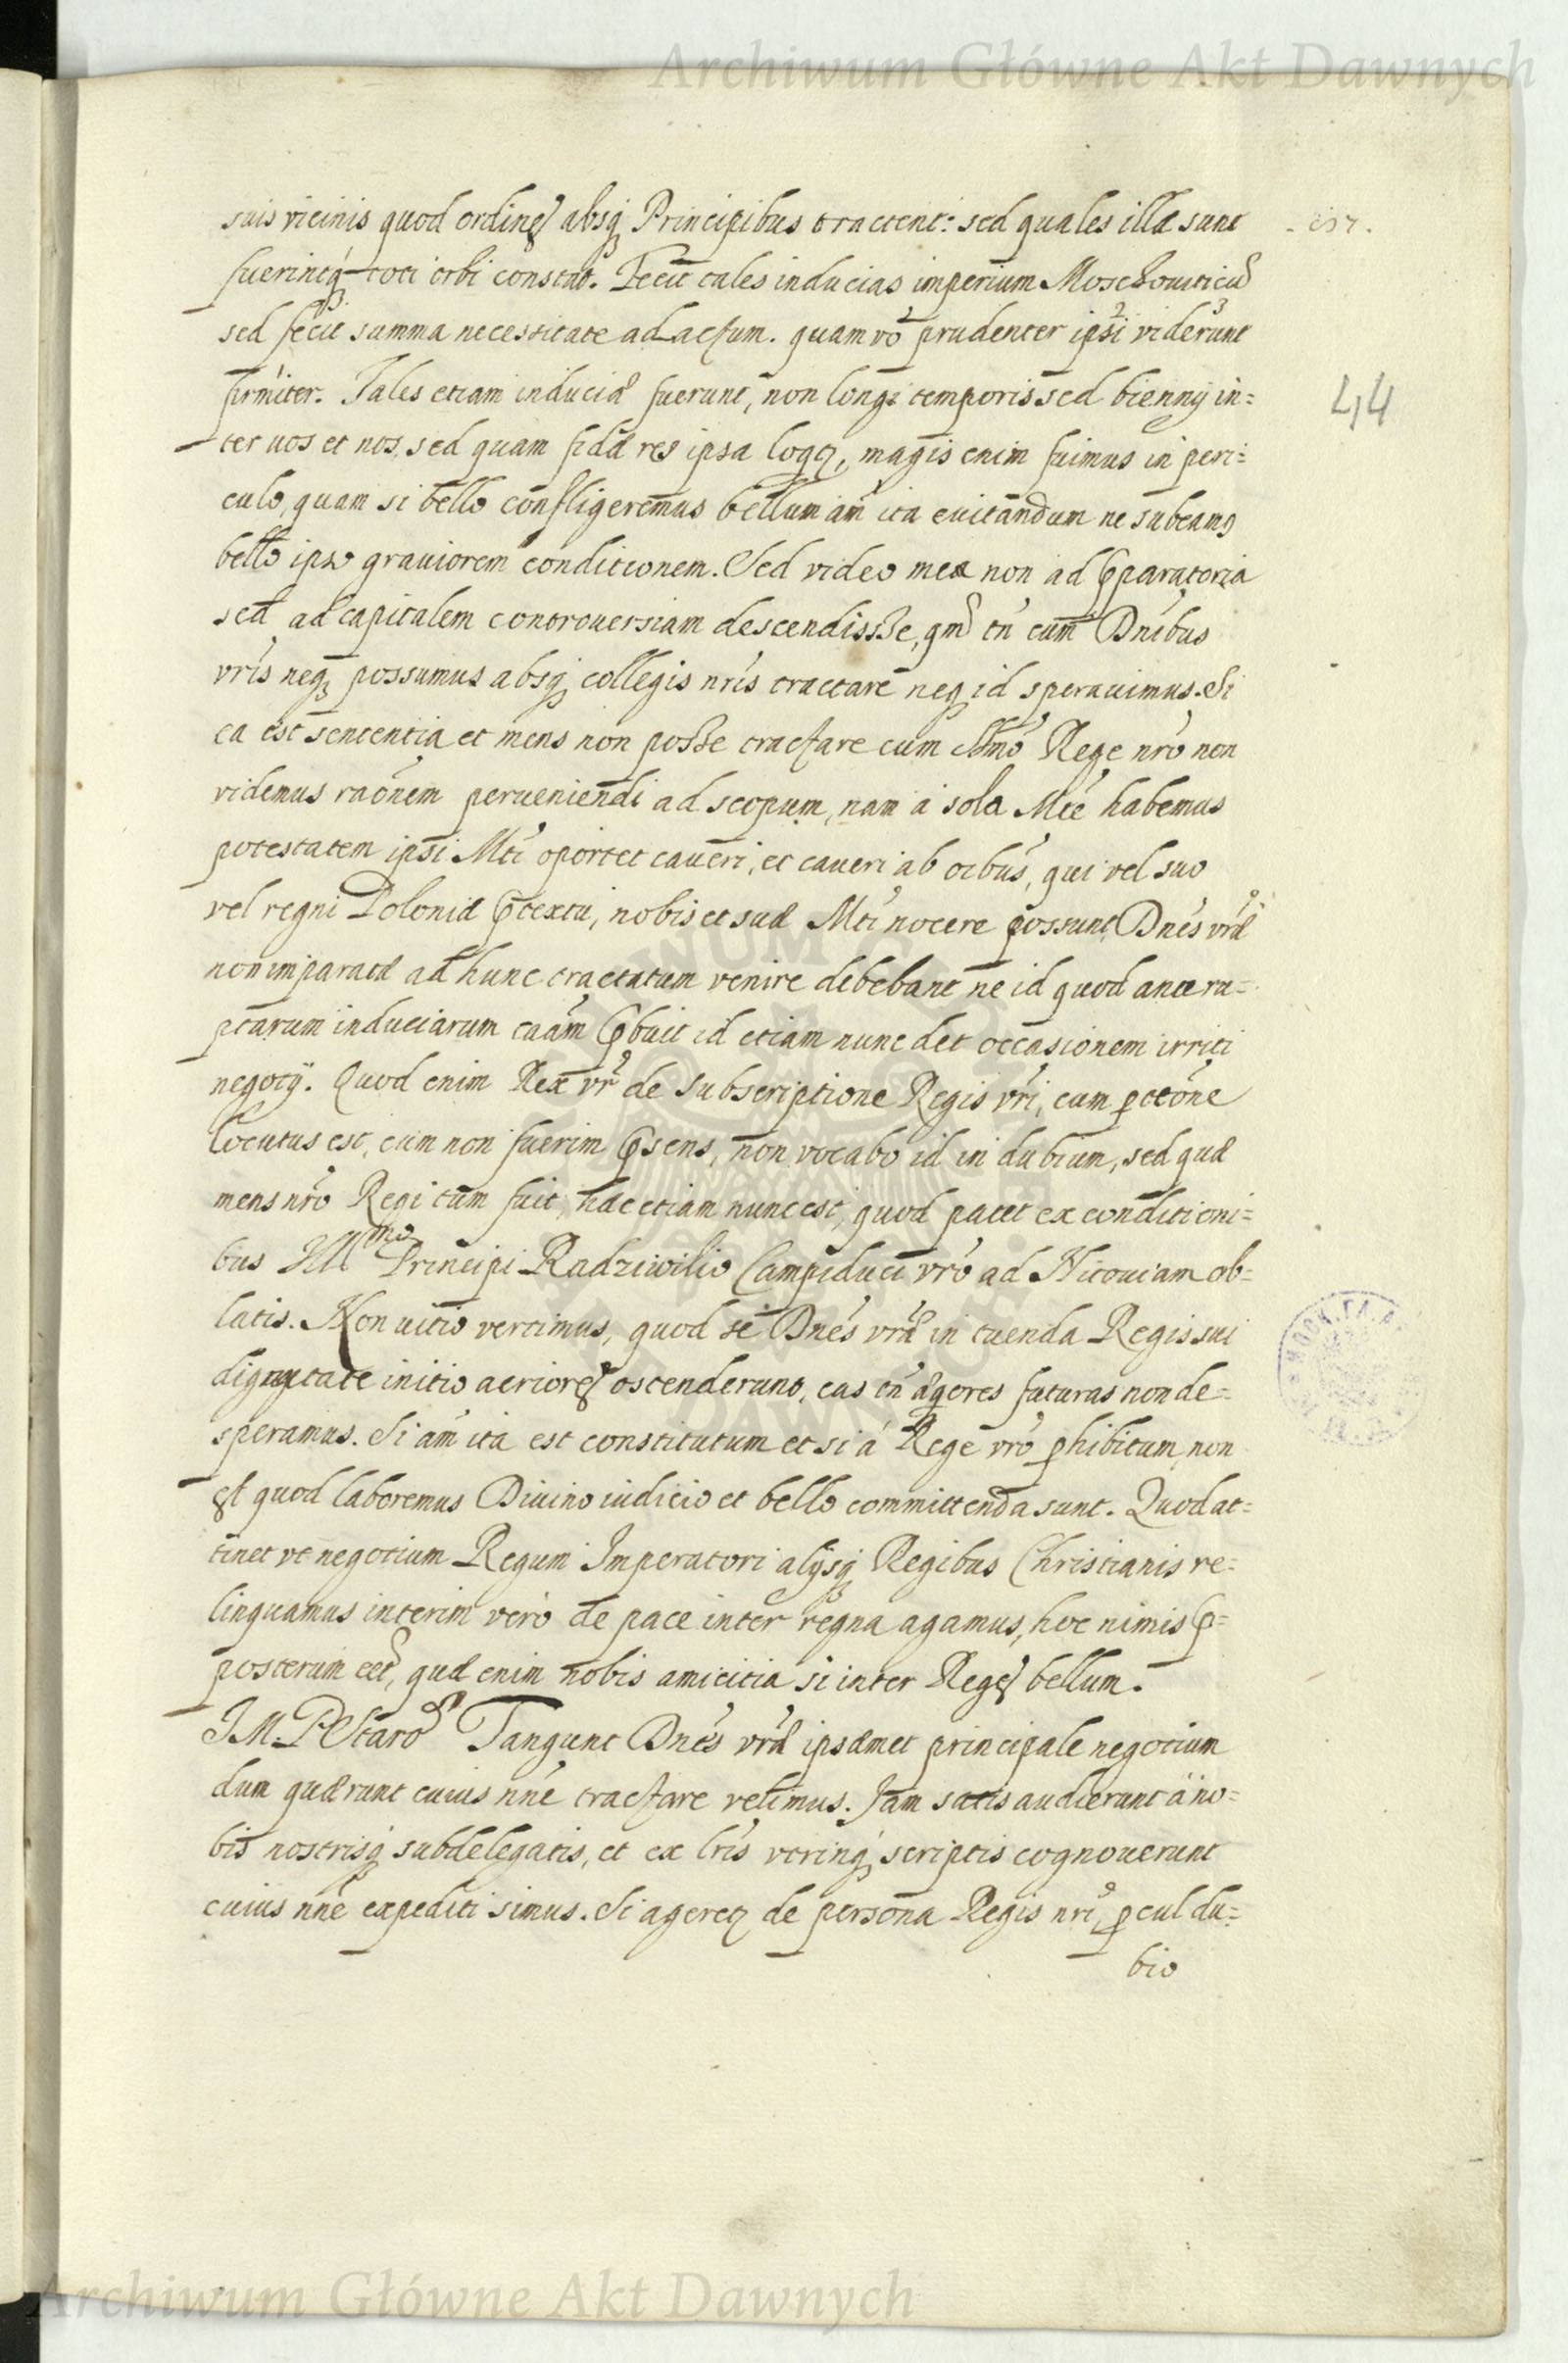 Archiwum Główne Akt Dawnych
suis vicinis quod ordines absq; Principibus tractent: sed quales illæ sunt
fuerintq; toti orbi constat. Fecit tales inducias imperium Moschouiticũ
44
sed fecit summa necessitate adactum. quam vó prudenter ipsi viderunt
firmiter. Tales etiam induciæ fuerunt, non longi temporis sed biennij in=
ter uos et nos, sed quam fidæ res ipsa loqr, magis enim fuimus in peri=
culo, quam si bello confligeremus bellum aũt ita euitandum ne subeamus
bello ipso grauiorem conditionem. Sed video me non ad ꝓparatoria
sed ad capitalem controuersiam descendisse, qm̃ tñ cum Dnibus
vris neq; possumus absq; collegis nris tractare neq; id sperauimus. Si
ea est sententia et mens non posse tractare cum Smo Rege nro non
videmus raõnem perueniendi ad scopum, nam à sola Mte habemus
potestatem ipsi Mti oportet caueri, et caueri ab oibus, qui vel suo
vel regni Poloniæ p̃textu, nobis et suæ Mti nocere possunt, Dnes vræ
non imparatæ ad hunc tractatum venire debebant ne id quod ante ru=
ptarum induciarum caãm p̃buit id etiam nunc det occasionem irriti
negotij. Quod enim Rex vr de subscriptione Regis vri, cum ꝓtetõne
locutus est, cum non fuerim p̃sens, non vocabo id in dubium, sed quæ
mens nro Regi tum fuit, hæc etiam nunc est, quod patet ex conditioni=
bus Ill^mo Principi Radziwilio Campiduci vro ad Nitouiam ob=
latis. Non uitio vertimus, quod se Dnes vræ in tuenda Regis sui
dignitate initio acriores ostenderunt, eas tñ æquores futuras non de=
speramus. Si aũt ita est constitutum et si à Rege vro ꝓhibitum, non
est quod laboremus Diuino iudicio et bello committenda sunt. Quod at=
tinet vt negotium Regum Imperatori alijsq; Regibus Christianis re=
linquamus interim verò de pace inter regna agamus, hoc nimis p̃=
posterum eet, quæ enim nobis amicitia si inter Reges bellum.
J.M.P. Staro Tangunt Dnes vræ ipsæmet principale negotium
dum quærunt cuius nñe tractare velimus. Jam satis audierunt à no=
bis nostrisq; subdelegatis, et ex lris utrinq; scriptis cognouerunt
cuius nñe expediti simus. Si ageretr de persona Regis nri, ꝓcul du=
bio
Archiwum Główne Akt Dawnych